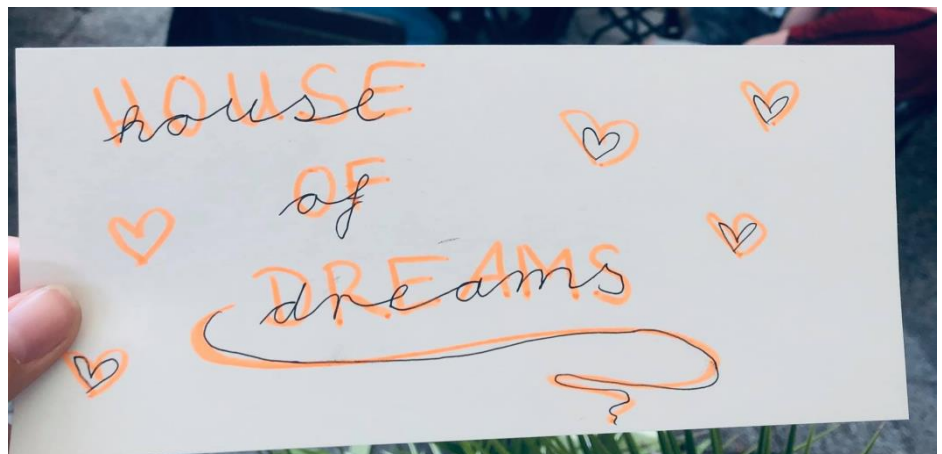 HOUSE
house
OF
of
DREAMS
dreams